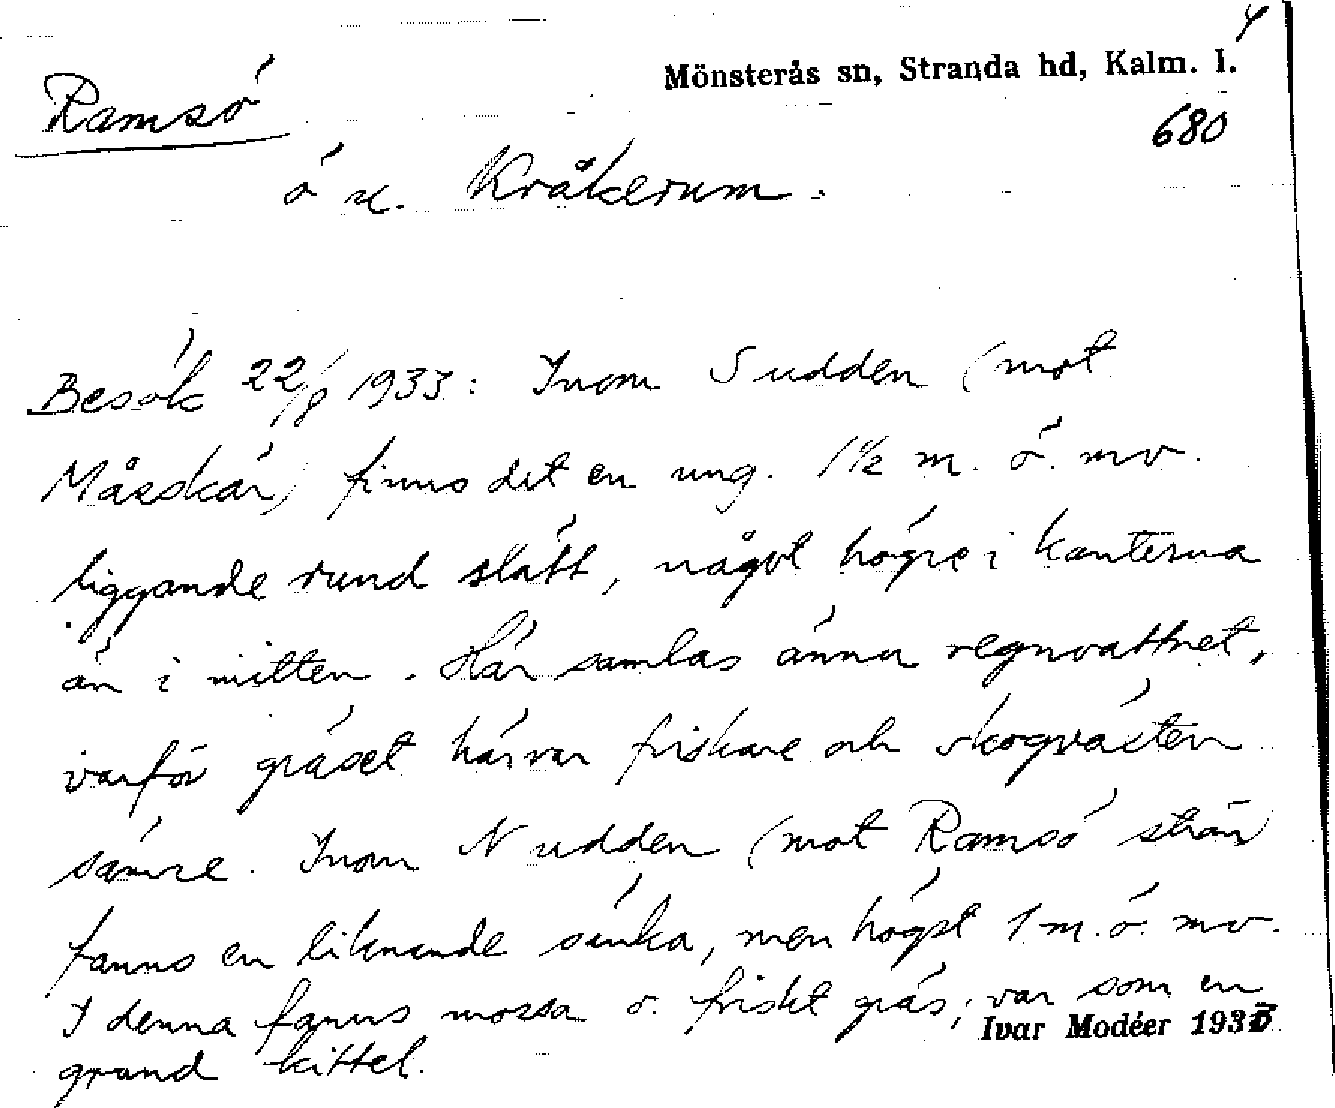 4
Mönsterås sn, Stranda hd, Kalm. l.
Ramsö
680
ö u. Kråkerum.
Besök 22/8 1933: Inom S udden (mot
Måsskär) finns det en ung. 1 1/2 m. ö. mv.
liggande rund slätt, något högre i kanterna
än i mitten. Här samlas ännu regnvattnet,
varför gräset här var friskare och skogväxten
sämre. Inom N udden (mot Ramsö strön)
fanns en liknande sänka, men högst 1 m. ö. mv.
I denna fanns mossa o. friskt gräs; var som en
Ivar Modéer 193
grund kittel.